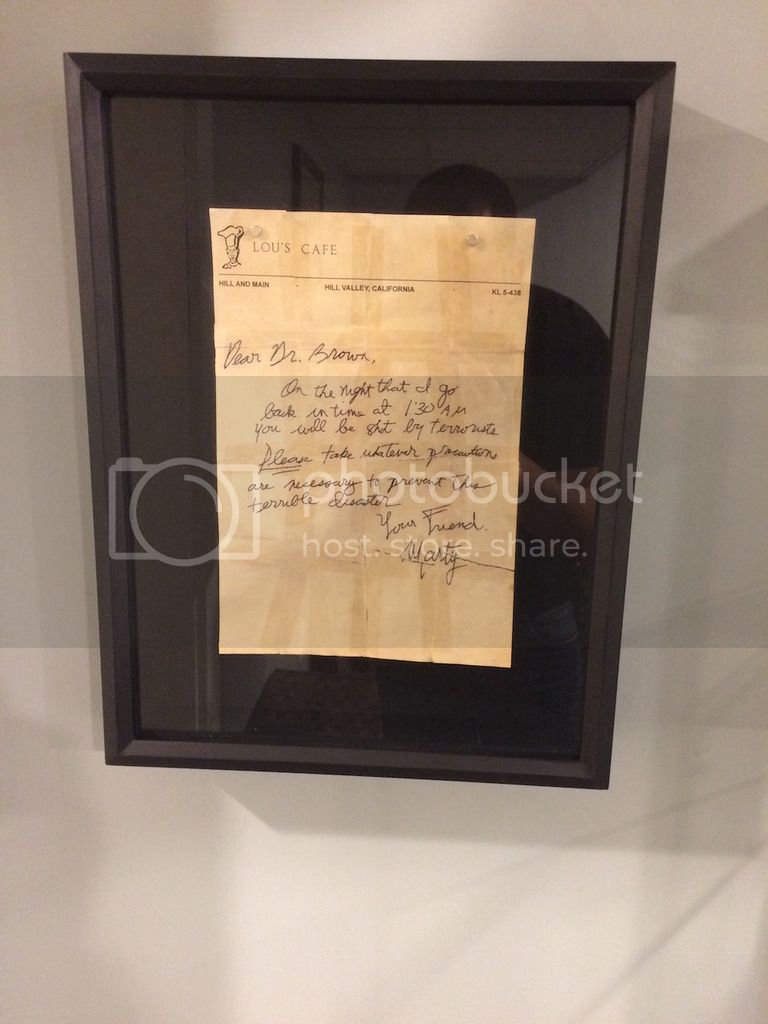 LOU'S CAFE
HILL AND MAIN HILL VALLEY, CALIFORNIA KL 5-438
Dear Dr. Brown,
On the night that I go
back in time at 1:30 AM
you will be shot by terrorists
Please take whatever precautions
are necessary to prevent this
terrible disaster
Your Friend.
Marty
photobucket
host. store. share.